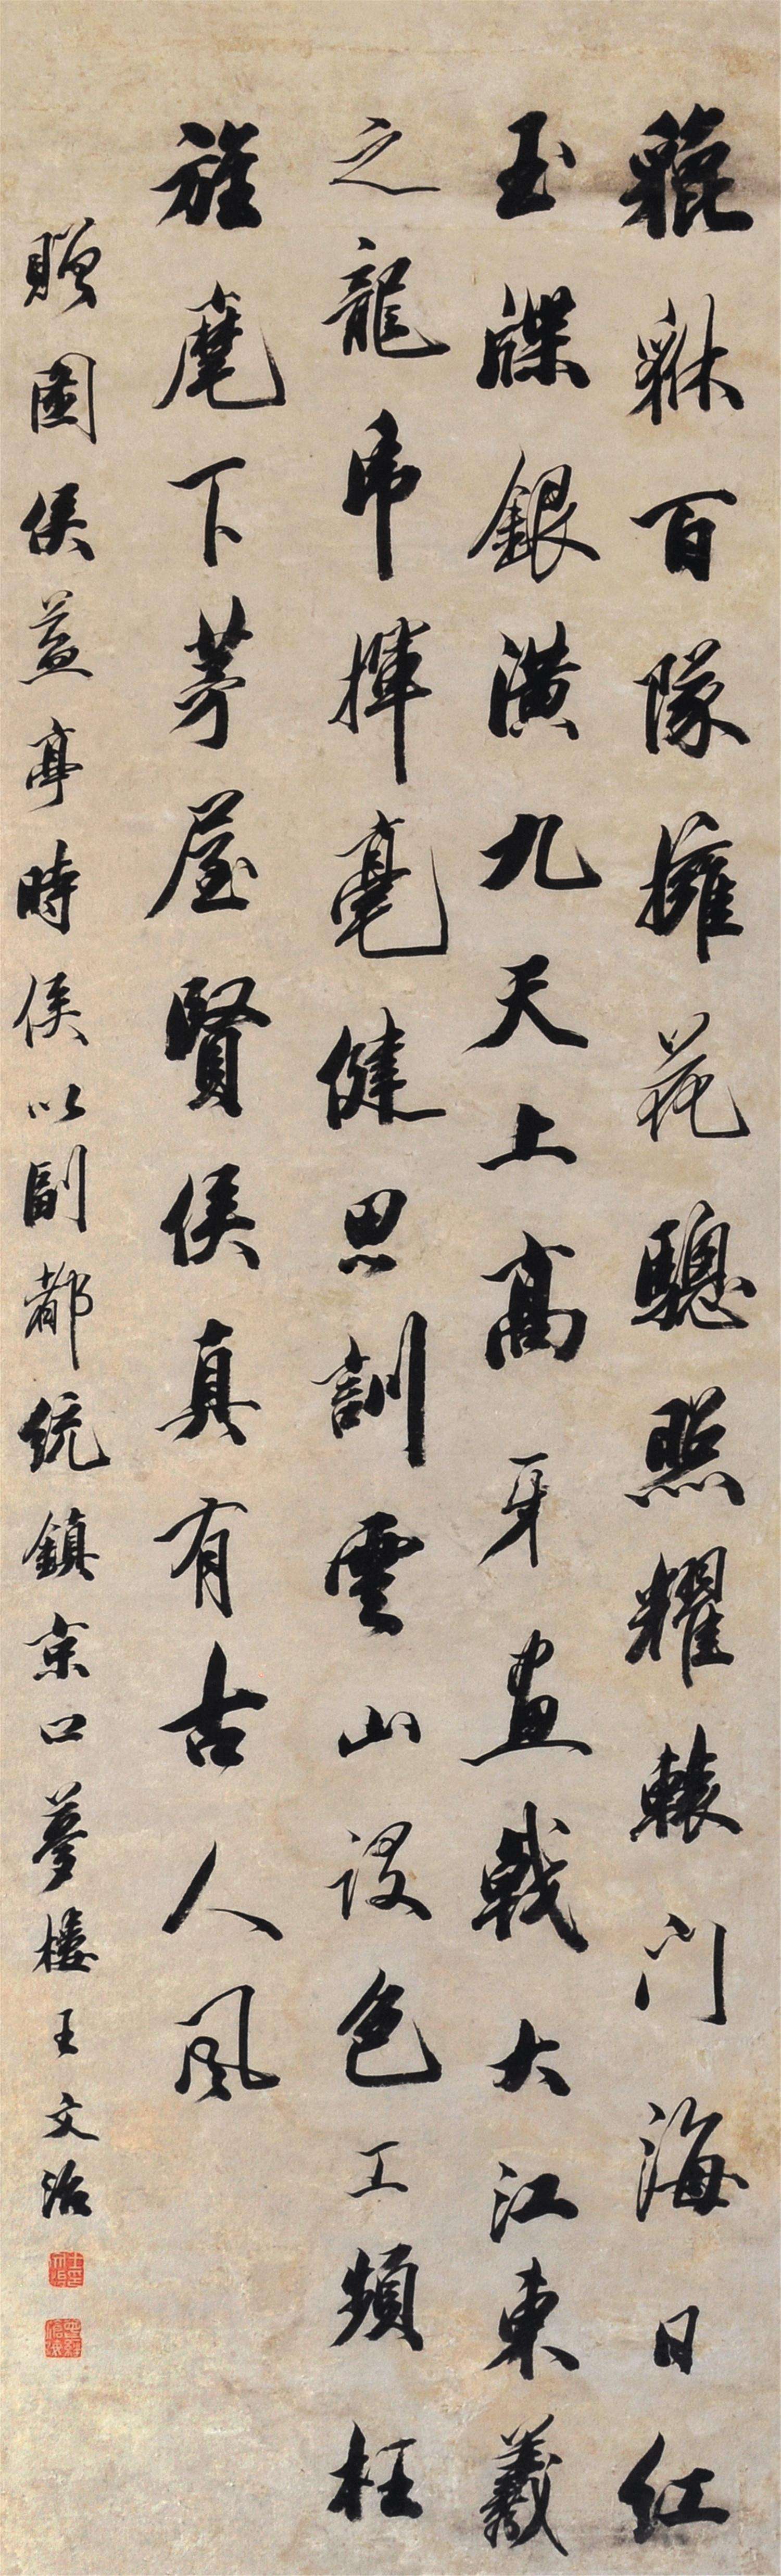 貔貅百隊擁花驄照耀轅門海日紅
玉牒銀潢九天上高牙畫戟大江東羲
之龍帛揮毫健思訓雲山設色工頻枉
旌麾下茅屋賢侯真有古人風
贈國侯益亭時侯以副都統鎮京口夢樓王文治